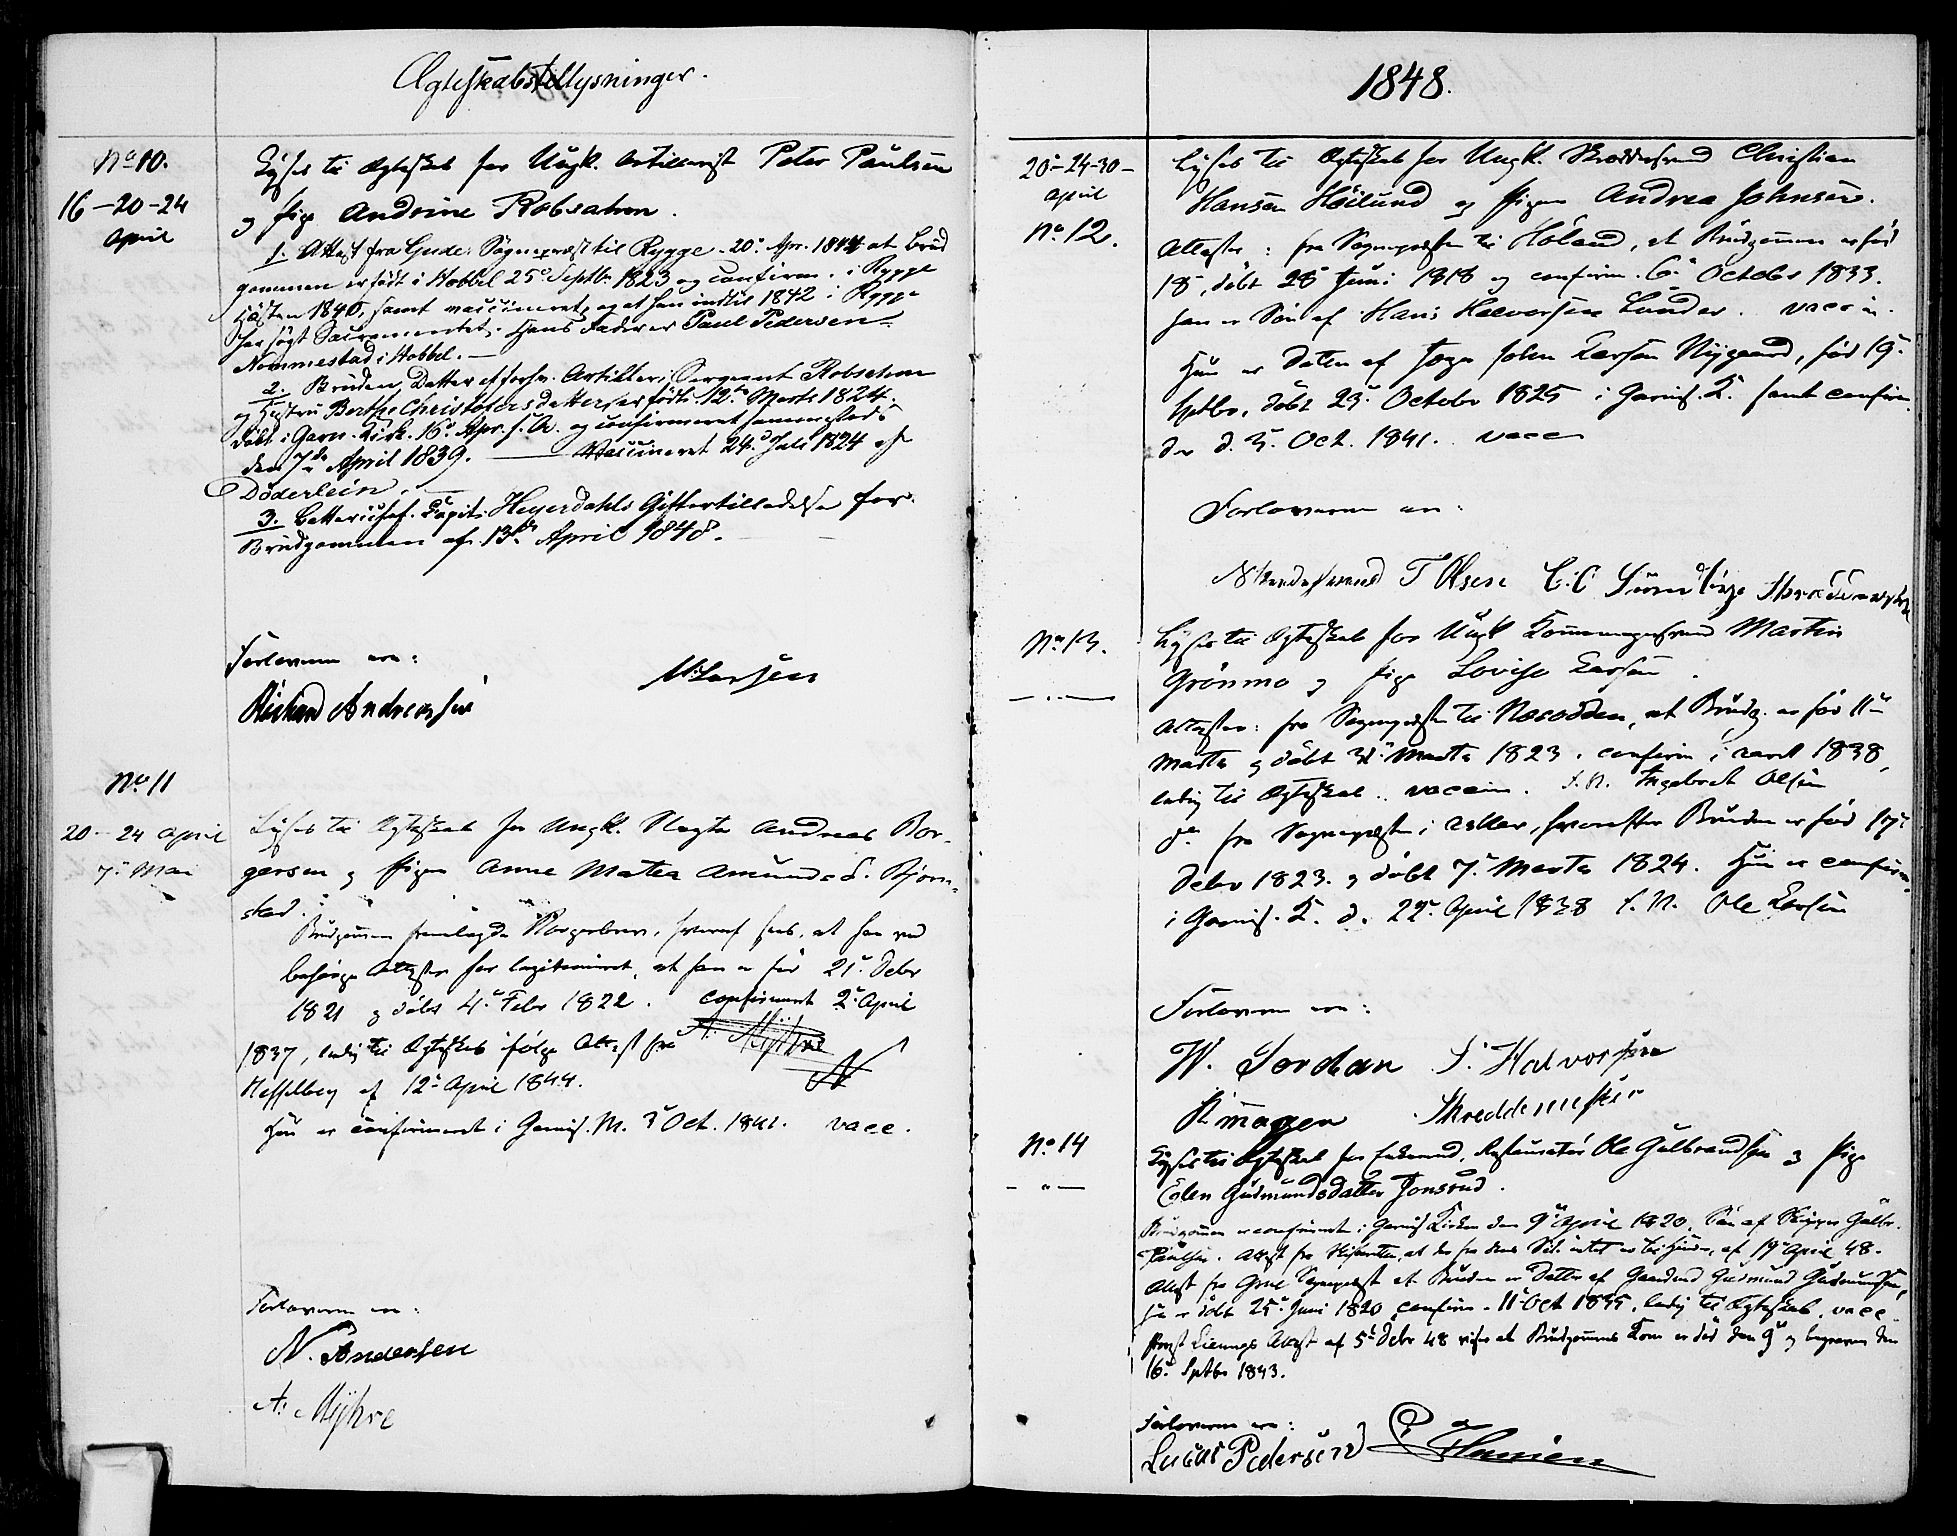 Ægteskabstillysninger.
No 10.
16-20-24
April
Lyses til Ægteskab for Ungk. Artillerist Peter Paulsen
og Pige Andrine Robsahm.
1. Attest fra Gude, Sognepræst til Rygge 20de Apr. 1844 at Brud
gommen er født i Hobbel 25de Septbr 1823 og confirm. i Rygge
Høsten 1840, samt vaccineret, og at han indtil 1842 i Rygge
har søgt Sacramentet. Hans Fader er Paul Pedersen
Nommestad i Hobbel. —
2. Bruden, Datter af forhv. Artilleri Sergeant Robsahm
og Hustru Berthe Christofersdatter er født 12te Marts 1824.
døbt i Garn. Kirk. 16de Apr. s. A. og confirmeret sammesteds
den 7de April 1839. — Vaccineret 24de Juli 1824 af
Døderlein. —
3. Batterichef. Capit. Heyerdahls Giftertilladelse for
Brudgommen af 13de April 1848. —
Forloverne ere:
Richard Andreassen
M. Larsen
No 11
20-24 April
7de Mai
Lyses til Ægteskab for Ungk. Andreas Bor-
gersen og Pigen Anne Matea Amunds d. Bjørn-
stad.
Brudgommen fremlagde Borgerbrev, hvoraf sees, at han ved
behørige Attester har legitimeret, at han er født 21de Debr
1821 og døbt 4de Febr 1822. confirmeret 2de April
1837, ledig til Ægteskab ifølge Attest fra A. Myhre
Hesselberg af 12te April 1844. N
Hun er confirmeret i Garnis. M. 3 Oct. 1841. vacc.
Forloverne ere:
N. Andersen
A. Myhre
1848.
20-24-30-
April
No 12.
Lyses til Ægteskab for Ungk. Skræddersvend Christian
Hansen Høilund og Pigen Andrea Johnsen.
Attester: fra Sognepræsten til Høland, at Brudgommen er født
18, døbt 28 Juni 1818 og confirm. 6te October 1833.
han er Søn af Hans Halvorsen Lunder. vaccin.
Hun er Datter af John Larsen Nygaard, født 19de
Sptbr, døbt 23de October 1825 i Garnis. K. samt confirm.
der d. 3 Oct. 1841. vacc
Forloverne ere:
Skrædersvend T Olsen C. C. Skreddermester
No 13.
— " —
Lyses til Ægteskab for Ungk. Martin
Grønmo og Pige Lovise Larsen.
Attester: fra Sognepræsten til Næsodden, at Brudg. er født 11te
Marts og døbt 31te Marts 1823. confirm i 1838,
ledig til Ægteskab. vaccin. S. A. Ingebret Olsen
do fra Sognepræsten i, hvorefter Bruden er født 17de
Debr 1823. og døbt 7de Marts 1824. Hun er confirm.
i Garnis. K. d. 22de April 1838 S. A. Ole Larsen
Forloverne ere:
W. Jordan S. Halvorsen
Skreddemester
No 14
— " —
Lyses til Ægteskab for Enkemand, Restauratør Ole Gulbrandsen og Pige
Eden Gudmundsdatter Jonsrud.
Brudgommen er confirmeret i Garnis Kirken den 9de April 1820. Søn af Gulbr.
Paulsen. Attest fra Skifteretten, at der fra dens Side intet er til Hinder, af 19de April 48.
Attest fra Grue Sognepræst at Bruden er Datter af Gaardmd Gudmund Gudmundsen,
hun er døbt 25de Juni 1820, confirm. 11te Oct 1835, ledig til Ægteskab. vacc.
Provst Lienungs Attest af 5te Debr 48 viser at Brudgommens Kone er død den 9de og begraven den
16de Sptbr 1843.
Forloverne ere:
Lucas Pedersen P Hansen